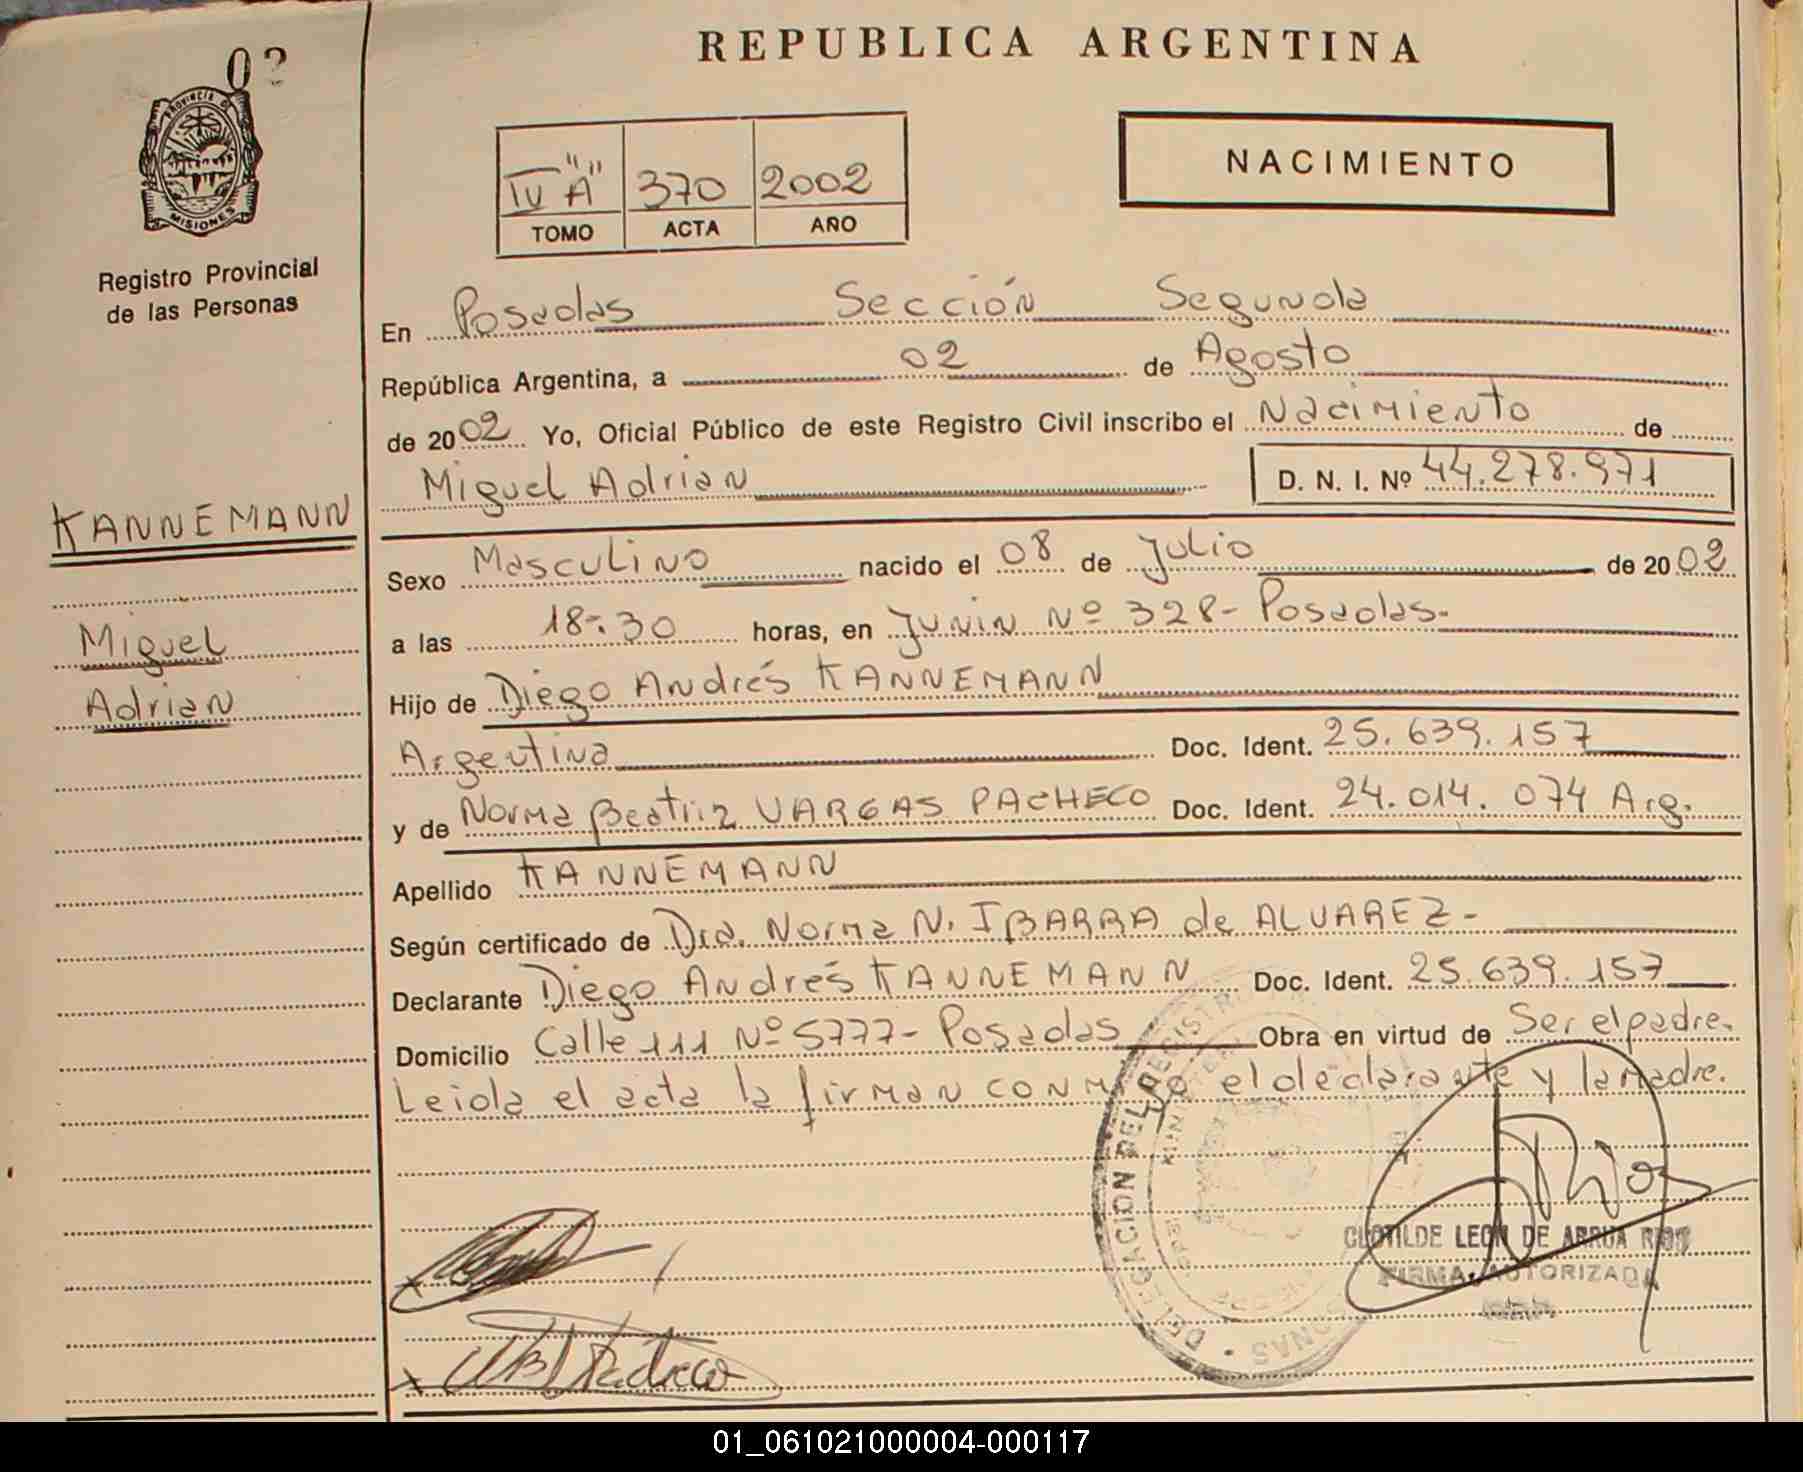 REPUBLICA ARGENTINA
PROVINCIA DE
MISIONES
Registro Provincial
de las Personas
IV "A" 370 2002
TOMO ACTA AÑO
NACIMIENTO
En Posadas Sección Segunda
República Argentina, a 02 de Agosto
de 2002 Yo, Oficial Público de este Registro Civil inscribo el Nacimiento de
Miguel Adrian D. N. I. Nº 44.278.971
KANNEMANN
Miguel
Adrian
Sexo Masculino nacido el 08 de Julio de 2002
a las 18:30 horas, en Junin Nº 328- Posadas-
Hijo de Diego Andrés KANNEMANN
Argentina Doc. Ident. 25.639.157
y de Norma Beatriz VARGAS PACHECO Doc. Ident. 24.014.074 Arg.
Apellido KANNEMANN
Según certificado de Dra. Norma N. IBARRA de ALVAREZ-
Declarante Diego Andrés KANNEMANN Doc. Ident. 25.639.157
Domicilio Calle 111 Nº 5777- Posadas Obra en virtud de Ser el padre.
Leida el acta la firman conmigo el declarante y la Madre.
DELEGACION DEL REGISTRO
CLOTILDE LEON DE ARRUA RIOS
FIRMA AUTORIZADA
Pacheco
01_061021000004-000117